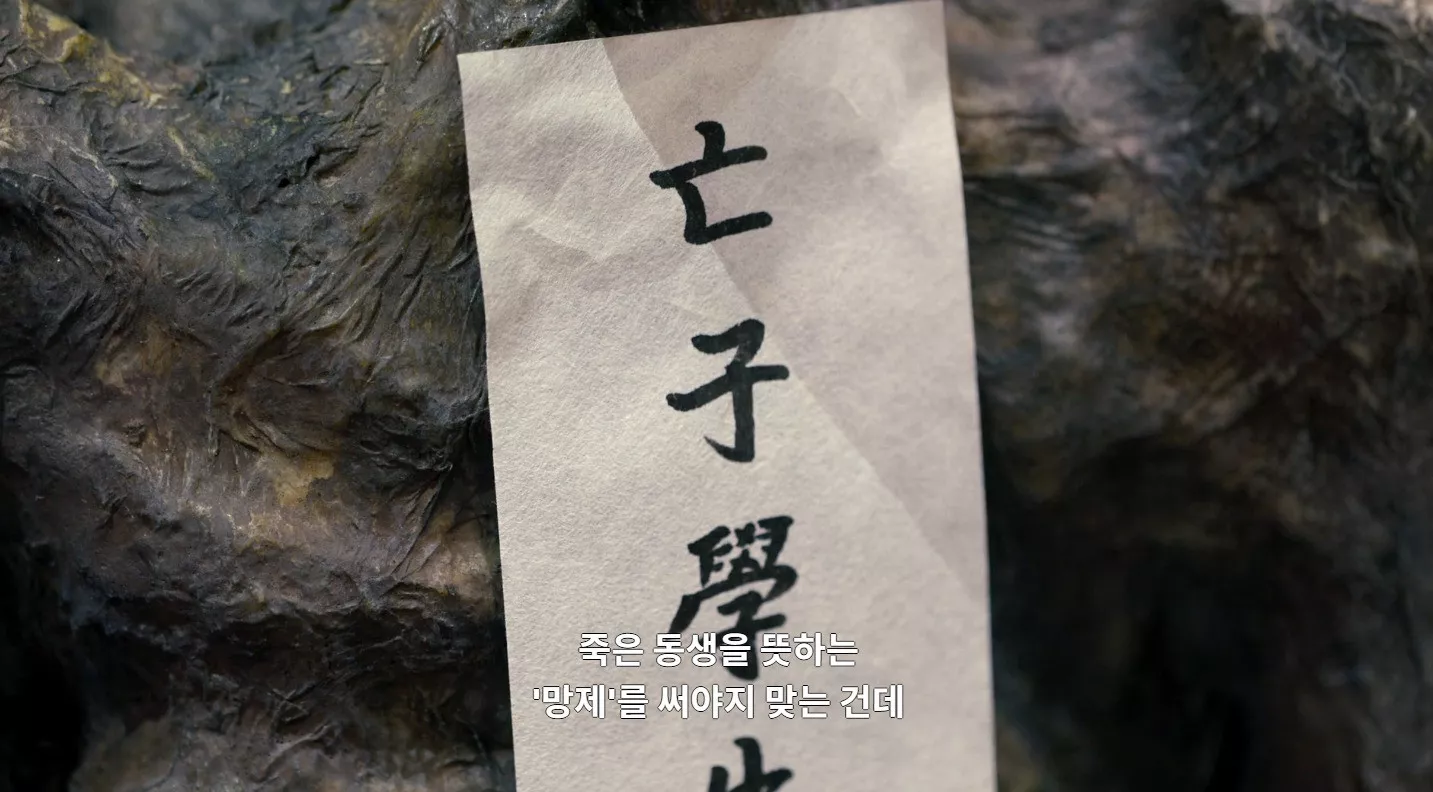 亡
子
學
죽은 동생을 뜻하는
'망제'를 써야지 맞는 건데